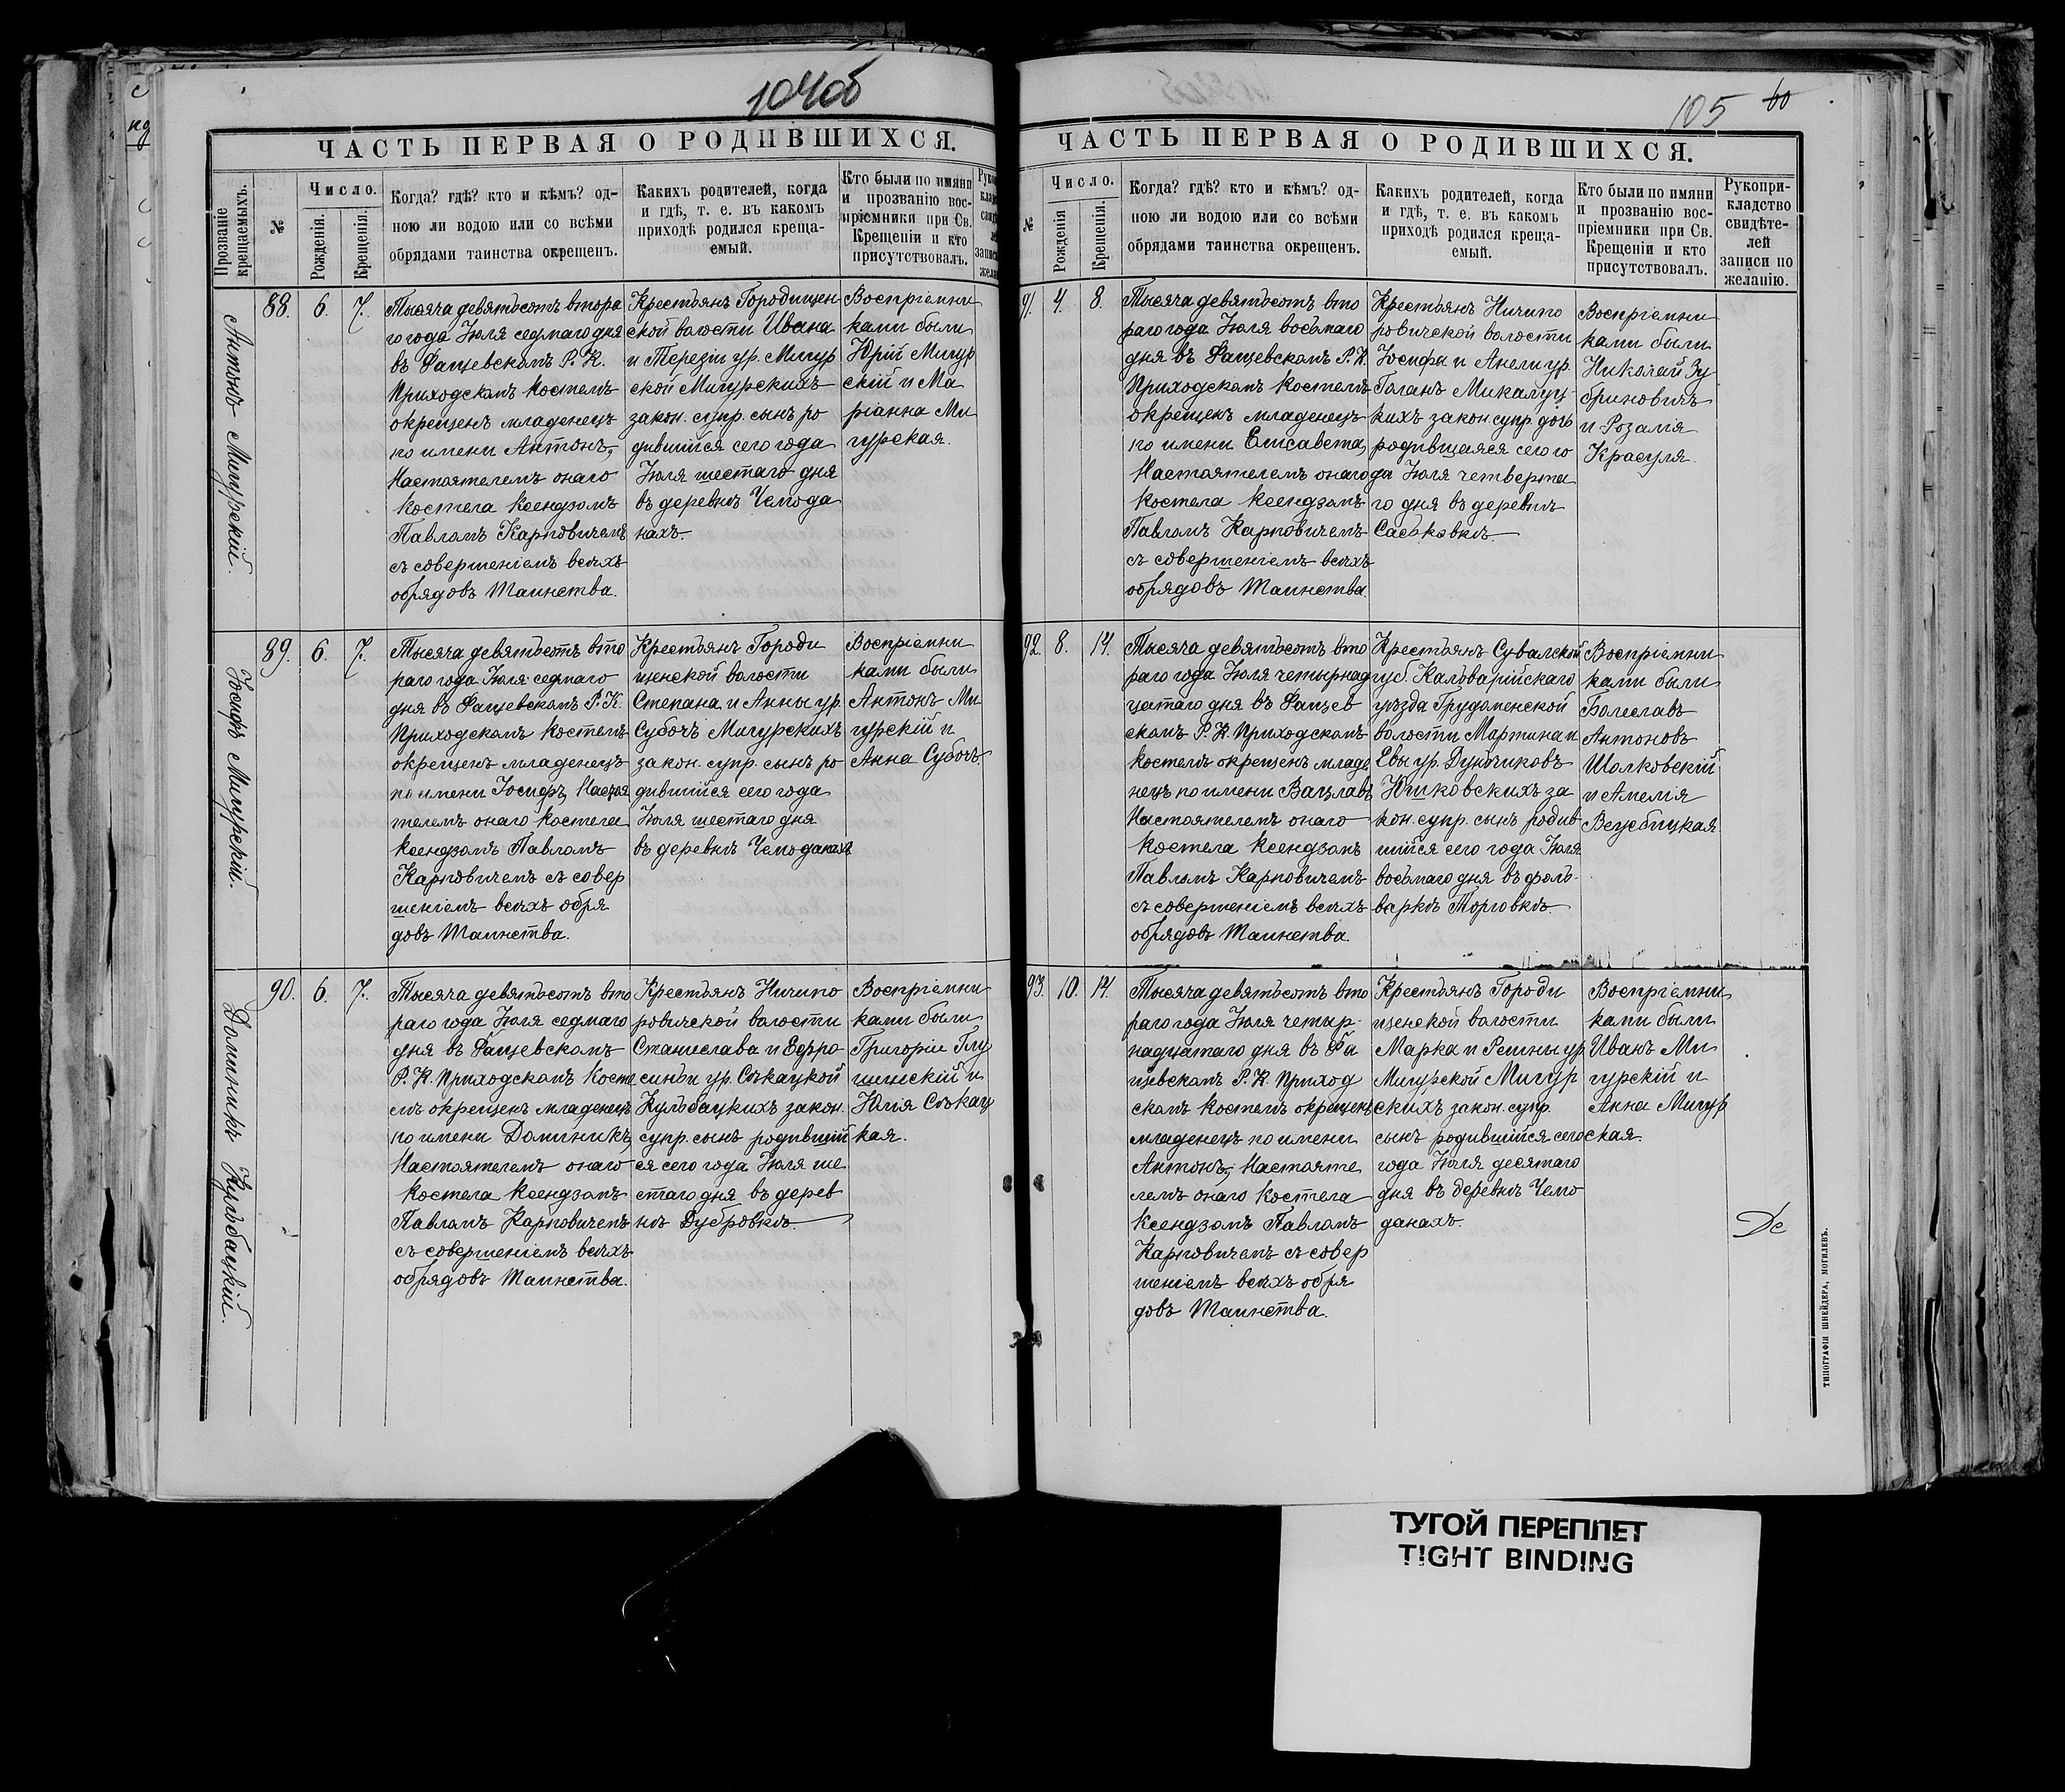 104об
ЧАСТЬ ПЕРВАЯ О РОДИВШИХСЯ.
Прозваніе крещаемыхъ.
№
Число.
Рожденія.
Крещенія.
Когда? гдѣ? кто и кѣмъ? од-
ною ли водою или со всѣми
обрядами таинства окрещенъ.
Какихъ родителей, когда
и гдѣ, т. е. въ какомъ
приходѣ родился креща-
емый.
Кто были по имяни
и прозванію вос-
пріемники при Св.
Крещеніи и кто
присутствовалъ.
Антонъ Мигурскій.
88. 6. 7.
Тысяча девятьсотъ втора
го года Іюля седмаго дня
въ Фащевскомъ Р. К.
Приходскомъ Костелѣ
окрещенъ младенецъ
по имени Антонъ,
Настоятелемъ онаго
Костела Ксендзомъ
Павломъ Карповичемъ
съ совершеніемъ всѣхъ
обрядовъ Таинства.
Крестьянъ Городищен
ской волости Ивана
и Терезіи ур. Мигур
ской Мигурскихъ
закон. супр. сынъ ро
дившійся сего года
Іюля шестаго дня
въ деревнѣ Чемода
нахъ.
Воспріемни
ками были
Юрій Мигур
скій и Ма
ріанна Ми
гурская.
Іосифъ Мигурскій.
89. 6. 7.
Тысяча девятьсотъ вто
раго года Іюля седмаго
дня въ Фащевскомъ Р. К.
Приходскомъ Костелѣ
окрещенъ младенецъ
по имени Іосифъ, Настоя
телемъ онаго Костела
Ксендзомъ Павломъ
Карповичемъ съ совер
шеніемъ всѣхъ обря
довъ Таинства.
Крестьянъ Городи
щенской волости
Степана и Анны ур.
Суbочъ Мигурскихъ
закон. супр. сынъ ро
дившійся сего года
Іюля шестаго дня
въ деревнѣ Чемоданахъ
Воспріемни
ками были
Антонъ Ми
гурскій и
Анна Субочъ.
Доминикъ Кульбацкій.
90. 6. 7.
Тысяча девятьсотъ вто
раго года Іюля седмаго
дня въ Фащевскомъ
Р. К. Приходскомъ Косте
лѣ окрещенъ младенецъ
по имени Доминикъ,
Настоятелемъ онаго
Костела Ксендзомъ
Павломъ Карповичемъ
съ совершеніемъ всѣхъ
обрядовъ Таинства.
Крестьянъ Ничипо
ровичской волости
Станислава и Ефро
синьи ур. Сѣкацкой
Кульбацкихъ закон.
супр. сынъ родившій
ся сего года Іюля ше
стаго дня въ дерев
нѣ Дубровкѣ.
Воспріемни
ками были
Григорій Глу
шинскій и
Юлія Сѣкац
кая.
105 60
ЧАСТЬ ПЕРВАЯ О РОДИВШИХСЯ.
№
Число.
Рожденія
Крещенія.
Когда? гдѣ? кто и кѣмъ? од-
ною ли водою или со всѣми
обрядами таинства окрещенъ.
Какихъ родителей, когда
и гдѣ, т. е. въ какомъ
приходѣ родился креща-
емый.
Кто были по имяни
и прозванію вос-
пріемники при Св.
Крещеніи и кто
присутствовалъ.
Рукопри-
кладство
свидѣте-
лей
записи по
желанію.
91. 4. 8.
Тысяча девятьсотъ вто
раго года Іюля восьмаго
дня въ Фащевскомъ Р. К.
Приходскомъ Костелѣ
окрещенъ младенецъ
по имени Елисавета,
Настоятелемъ онаго
Костела Ксендзомъ
Павломъ Карповичемъ
съ совершеніемъ всѣхъ
обрядовъ Таинства.
Крестьянъ Ничипо
ровичской волости
Іосифа и Анели ур.
Голанъ Микалуц-
кихъ закон супр. дочь
родившаяся сего го
да Іюля четверта
го дня въ деревнѣ
Саськовкѣ
Воспріемни
ками были
Николай Зу
бриновичъ
и Розалія
Красуля.
92. 8. 14.
Тысяча девятьсотъ вто
раго года Іюля четырнад
цатаго дня въ Фащев
скомъ Р. К. Приходскомъ
Костелѣ окрещенъ младе
нецъ по имени Вацлавъ,
Настоятелемъ онаго
Костела Ксендзомъ
Павломъ Карповичемъ
съ совершеніемъ всѣхъ
обрядовъ Таинства.
Крестьянъ Сувалской
губ. Кальварійскаго
уѣзда Грудоменской
волости Мартина и
Евы ур. Дунчиковъ
Юшковскихъ за
кон. супр. сынъ родив
шійся сего года Іюля
восьмаго дня въ фоль-
варкѣ Торговкѣ.
Воспріемни
ками были
Болеславъ
Антоновъ
Шолковскій
и Амелія
93. 10. 14.
Тысяча девятьсотъ вто
раго года Іюля четыр-
надцатаго дня въ Фа
щевскомъ Р. К. Приход
скомъ Костелѣ окрещенъ
младенецъ по имени
Антонъ, Настояте
лемъ онаго Костела
Ксендзомъ Павломъ
Карповичемъ съ совер
шеніемъ всѣхъ обря
довъ Таинства.
Крестьянъ Городи
щенской волости
Марка и Регины ур
Мигурской Мигур
скихъ закон. супр.
сынъ родившійся сего
года Іюля десятаго
дня въ деревнѣ Чемо
данахъ.
Воспріемни
ками были
Иванъ Ми
гурскій и
Анна Мигур
ская.
Де
ТИПОГРАФІЯ ШНЕЙДЕРА, МОГИЛЕВЪ.
ТУГОЙ ПЕРЕПЛЕТ
TIGHT BINDING